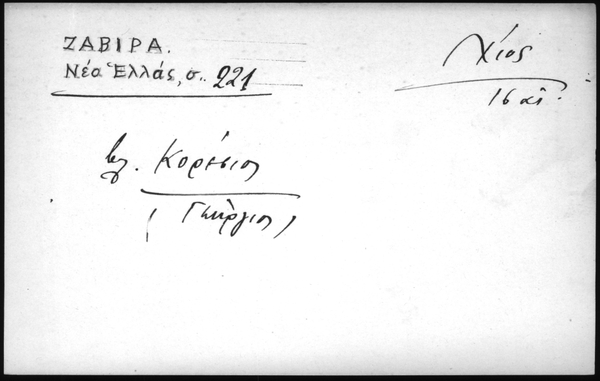 ΖΑΒΙΡΑ.
Νέα Ἑλλάς, σ. 221
Χίος
16 αἰ.
βλ. Κορέσιος
(Γεώργιος)